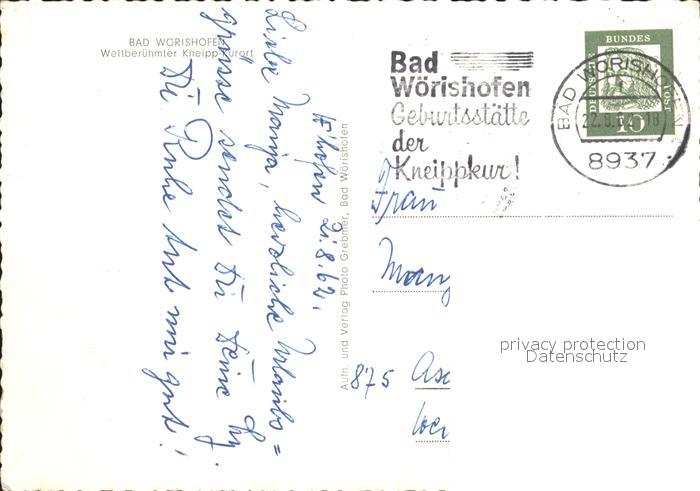 BAD WÖRISHOFEN
Weltberühmter Kneipp-Kurort
W'hofen 21.8.62.
Liebe Manja, herzliche Urlaubs=
grüsse sendet Dir Deine
Die Ruhe tut mir gut!
Aufn. und Verlag Photo Grebmer, Bad Wörishofen
Bad
Wörishofen
Geburtsstätte
der
Kneippkur!
BAD WÖRISHOFEN
22.8.62-18
8937
DEUTSCHE
BUNDES
POST
10
Frau
875
privacy protection
Datenschutz